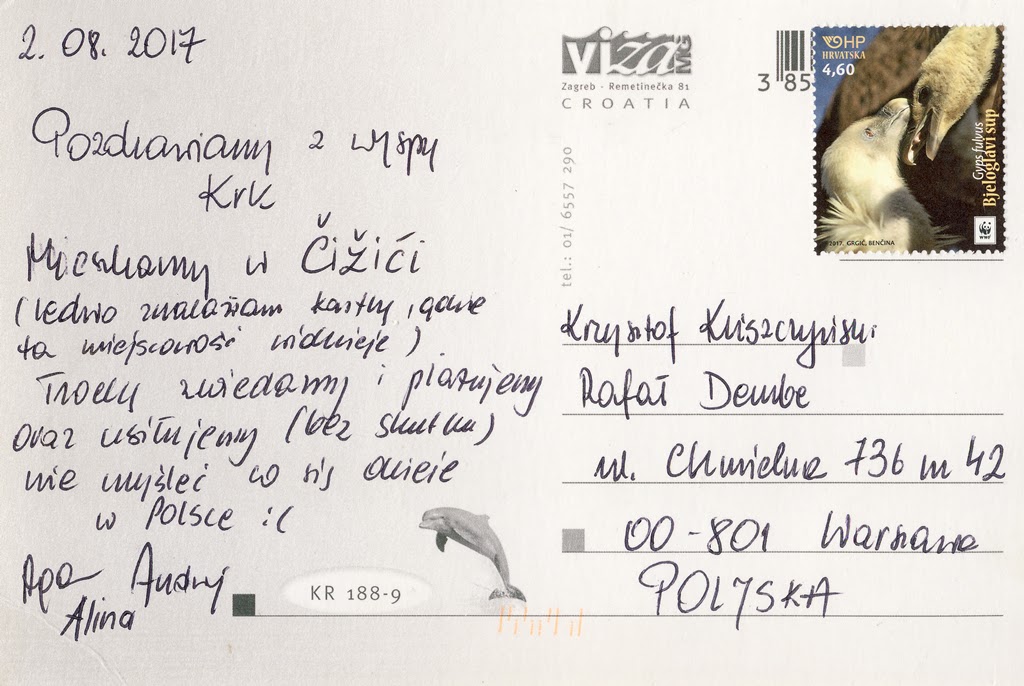 2. 08. 2017
Pozdrawiamy z wyspy
Krk
Mieszkamy w Čižići
(ledwo znalazłam kartkę, gdzie
ta miejscowość widnieje)
Trochę zwiedzamy i plażujemy
oraz usiłujemy (bez skutku)
nie myśleć co się dzieje
w Polsce :(
Aga Andrzej
Alina
KR 188-9
viza MG
Zagreb · Remetinečka 81
CROATIA
tel.: 01/ 6557 290
3 85
HP
HRVATSKA
4,60
Gyps fulvus
Bjeloglavi sup
©2017. GRGIĆ, BENČINA
WWF
Krzysztof
Rafał Dembe
ul. Chmielna 73b m 42
00-801 Warszawa
POLJSKA